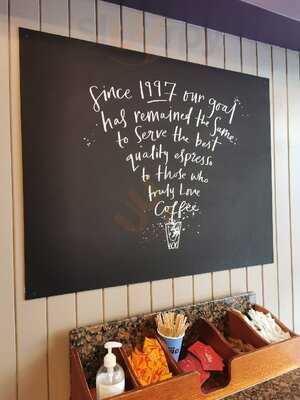 Since 1997 our goal
has remained the same
to serve the best
quality espresso
to those who
truly love
Coffee